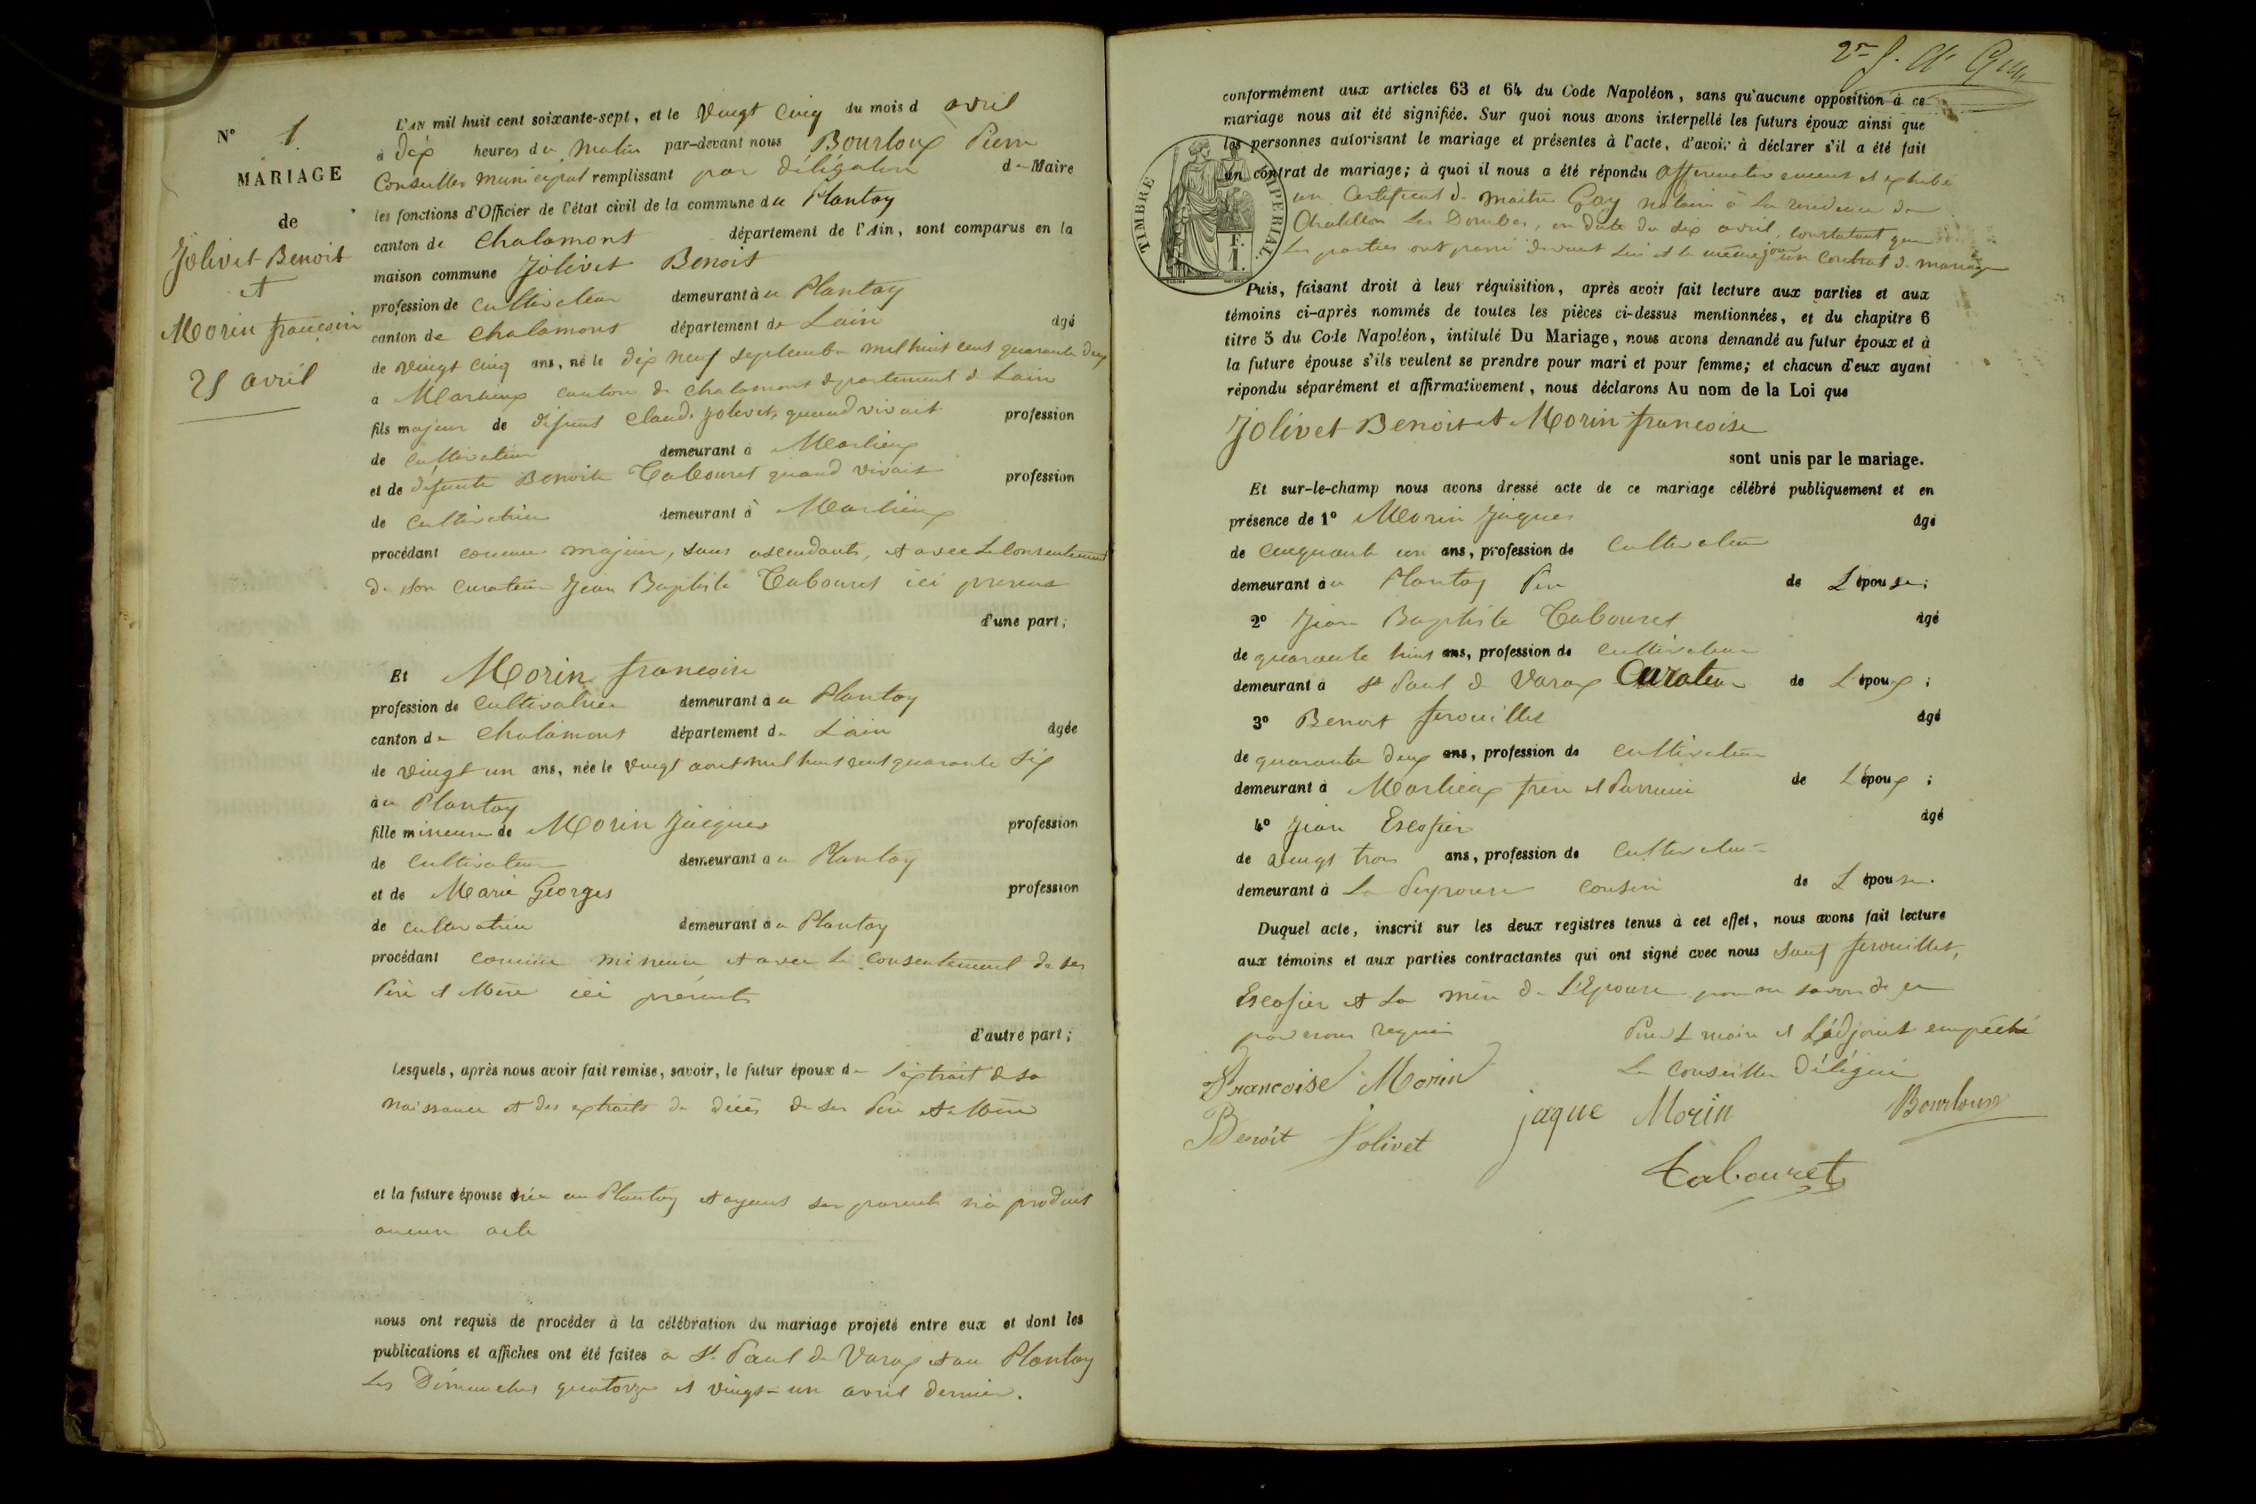 N° 1
MARIAGE
de
Jolivet Benoit
et
Morin françoise
25 avril
L'AN mil huit cent soixante-sept, et le vingt cinq du mois d avril
à dix heures du matin par-devant nous Bourloux Pierre
Conseiller municipal remplissant par délégation du Maire
les fonctions d'Officier de l'état civil de la commune du Plantay
canton de Chalamont département de l'Ain, sont comparus en la
maison commune Jolivet Benoit
profession de cultivateur demeurant à u Plantay
canton de Chalamont département de Lain âgé
de vingt cinq ans, né le dix neuf septembre mil huit cent quarante deux
à Marlieux canton de Chalamont département de Lain
fils majeur de défunt Claude Jolivet, quand vivait profession
de cultivateur demeurant à Marlieux
et de défunte Benoite Tabouret quand vivait profession
de cultivatrice demeurant à Marlieux
procédant comme majeur, sans ascendants, et avec le consentement
de son curateur Jean Baptiste Tabouret ici présent
d'une part;
Et Morin françoise
profession de cultivatrice demeurant à u Plantay
canton de Chalamont département de Lain âgée
de vingt un ans, née le vingt aout mil huit cent quarante six
à u Plantay
fille mineure de Morin Jacques profession
de cultivateur demeurant à u Plantay
et de Marie Georges profession
de cultivatrice demeurant à u Plantay
procédant comme mineure et avec le consentement de ses
Père et Mère ici présents
d'autre part;
Lesquels, après nous avoir fait remise, savoir, le futur époux de l'extrait de sa
naissance et des extraits de décès de ses Père et Mère
et la future épouse née au Plantay et ayant ses parents n'a produit
aucun acte
nous ont requis de procéder à la célébration du mariage projeté entre eux et dont les
publications et affiches ont été faites à St Paul de Varax et au Plantay
Les Dimanches quatorze et vingt-un avril dernier.
conformément aux articles 63 et 64 du Code Napoléon, sans qu'aucune opposition à ce
mariage nous ait été signifiée. Sur quoi nous avons interpellé les futurs époux ainsi que
les personnes autorisant le mariage et présentes à l'acte, d'avoir à déclarer s'il a été fait
un contrat de mariage; à quoi il nous a été répondu affirmativement et exhibé
un certificat de maitre Gay notaire à la residence de
Chatillon les Dombes, en date du dix avril, constatant que
les parties ont passé devant lui et le même jour un contrat de mariage
TIMBRE IMPERIAL.
Puis, faisant droit à leur réquisition, après avoir fait lecture aux parties et aux
témoins ci-après nommés de toutes les pièces ci-dessus mentionnées, et du chapitre 6
titre 5 du Code Napoléon, intitulé Du Mariage, nous avons demandé au futur époux et à
la future épouse s'ils veulent se prendre pour mari et pour femme; et chacun d'eux ayant
répondu séparément et affirmativement, nous déclarons Au nom de la Loi que
Jolivet Benoit et Morin françoise
sont unis par le mariage.
Et sur-le-champ nous avons dressé acte de ce mariage célébré publiquement et en
présence de 1° Morin Jaques âgé
de cinquante un ans, profession de cultivateur
demeurant à u Plantay Père de L'épouse;
2° Jean Baptiste Tabouret âgé
de quarante huit ans, profession de cultivateur
demeurant à St Paul de Varax Curateur de L'époux;
3° Benoit ferouillet âgé
de quarante deux ans, profession de cultivateur
demeurant à Marlieux frère et Parrain de L'époux;
4° Jean Escofier âgé
de vingt trois ans, profession de cultivateur
demeurant à La Peyrouse cousin de L'épouse.
Duquel acte, inscrit sur les deux registres tenus à cet effet, nous avons fait lecture
aux témoins et aux parties contractantes qui ont signé avec nous sauf ferouillet,
Escofier et la mère de L'Epouse pour ne savoir de ce
par nous requis
Pour le maire et L'adjoint empêché
Le Conseiller Délégué
Françoise Morin
jaque Morin
Bourloux
Benoit Jolivet
Tabouret